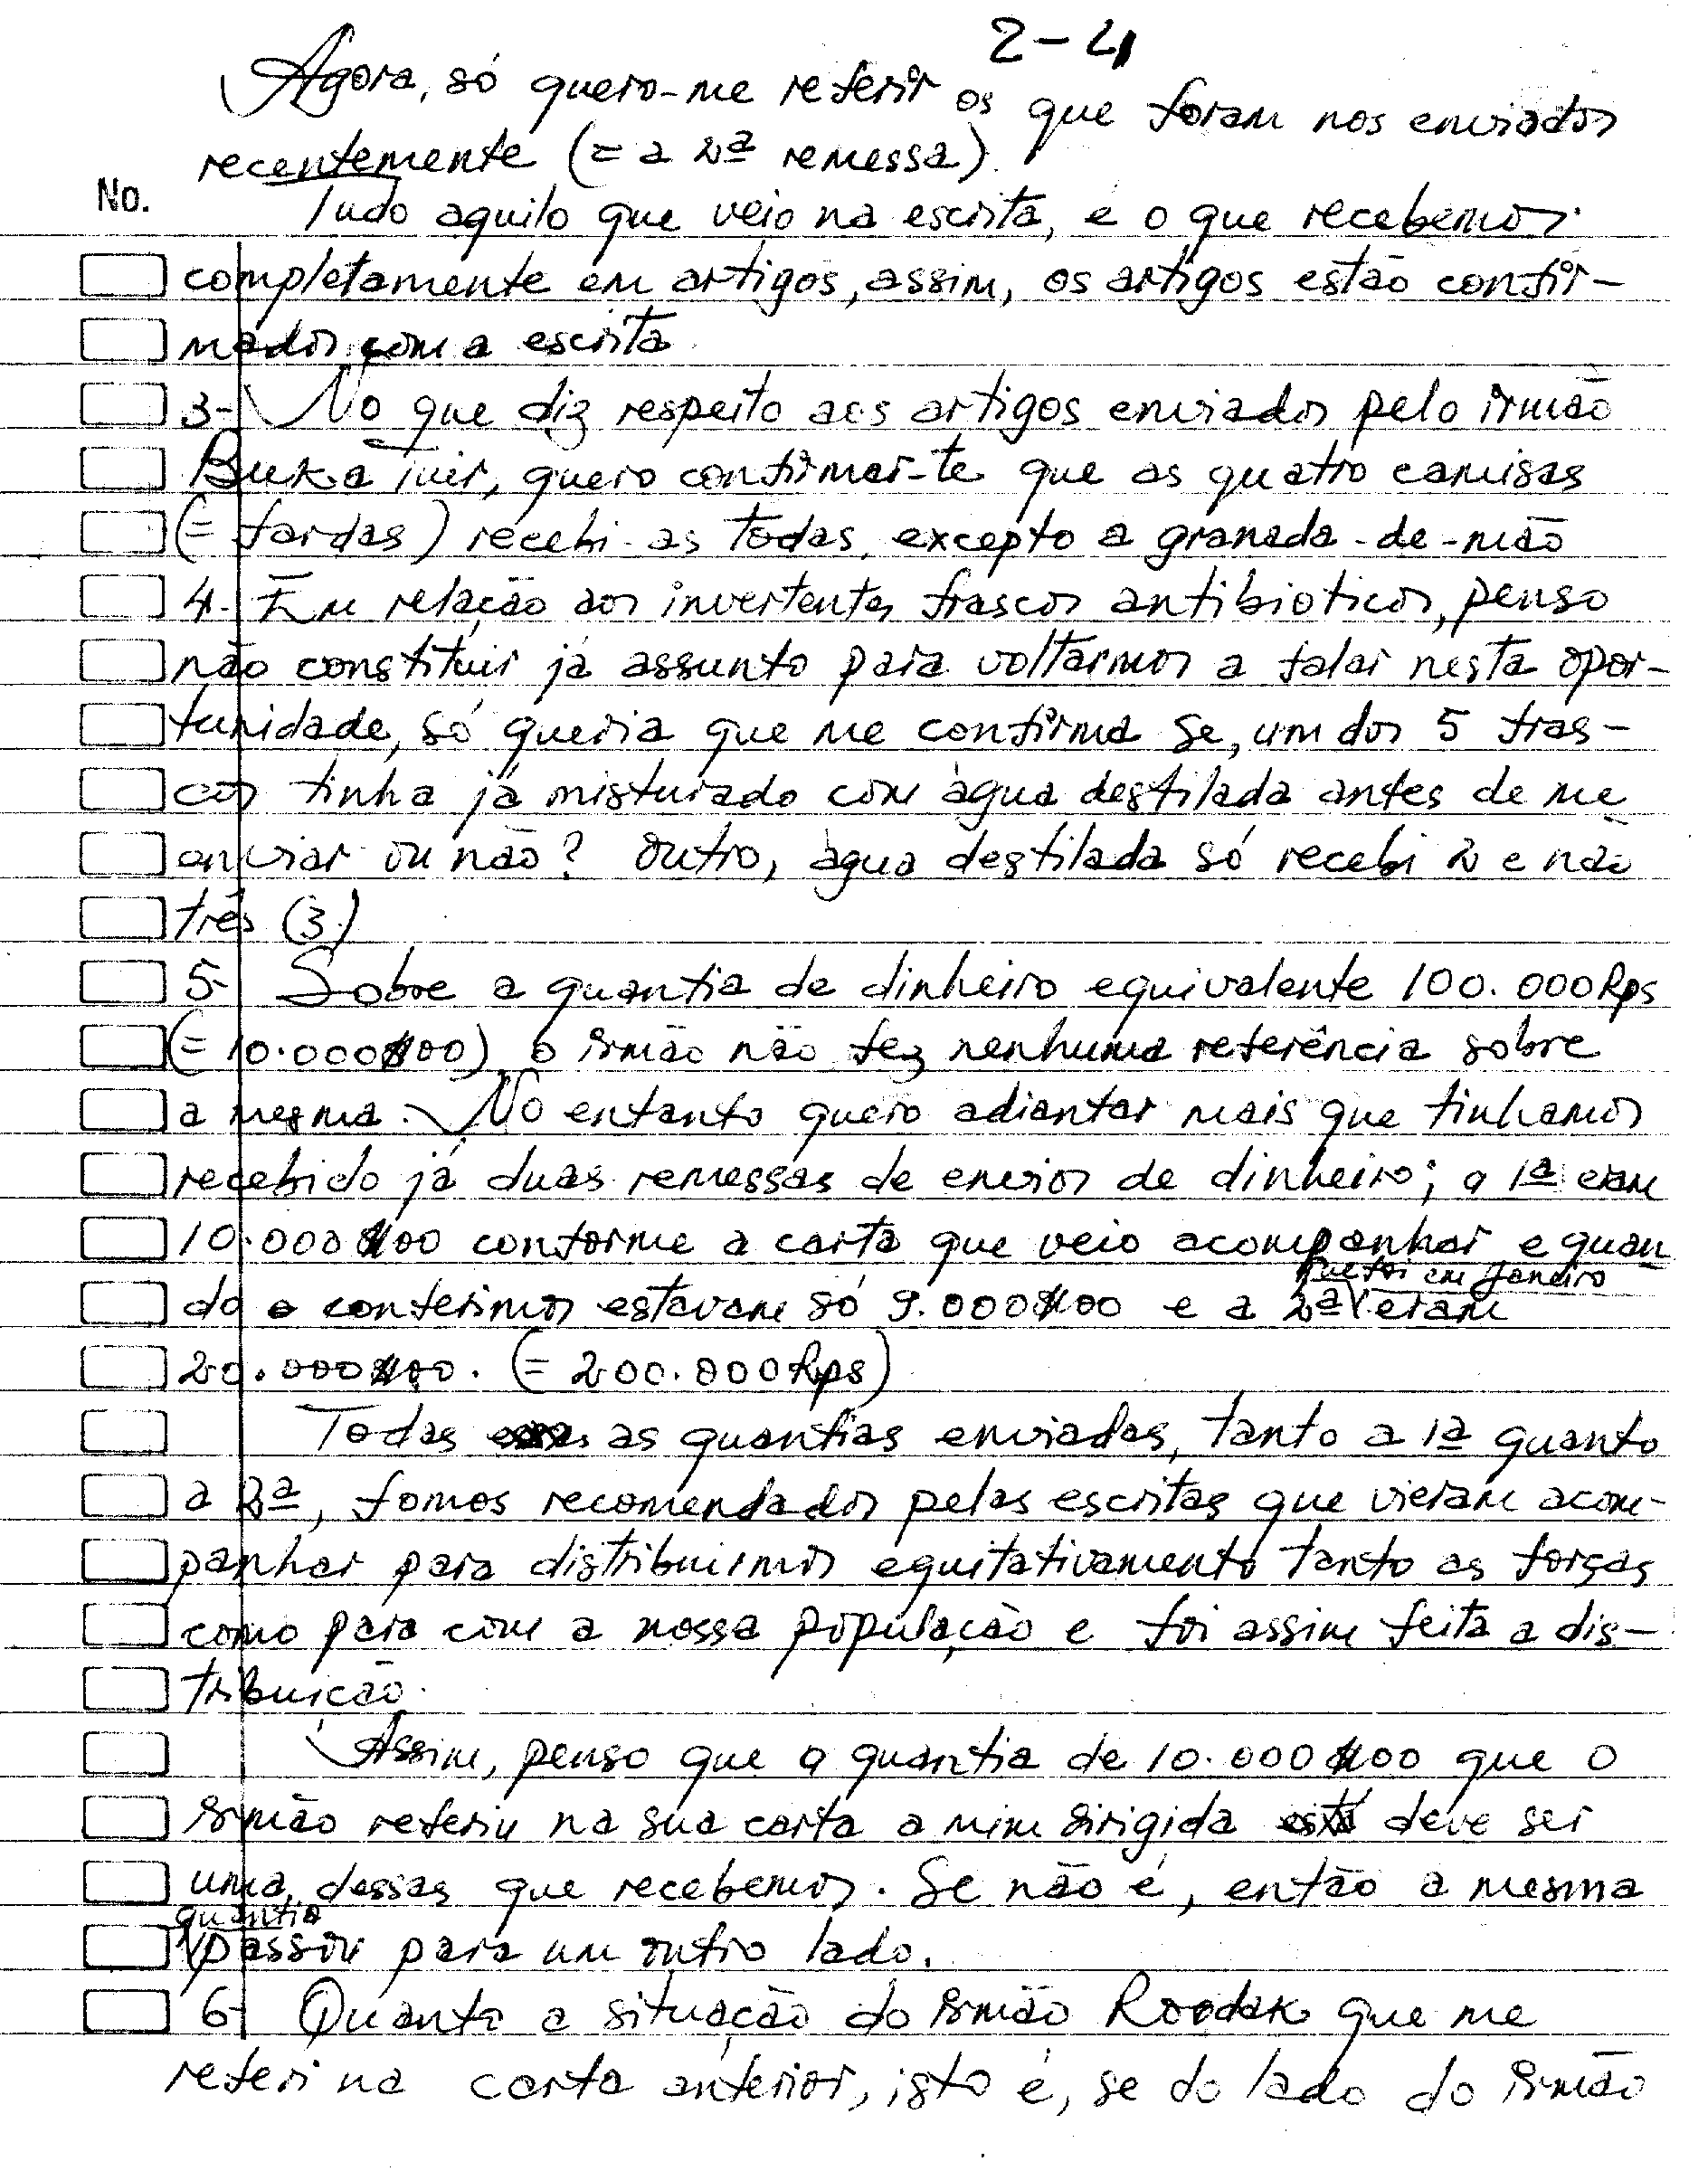 2-4
Agora, só quero-me referir os que foram nos enviados
recentemente (= a 2ª remessa).
No.
Tudo aquilo que veio na escrita, é o que recebemos
completamente em artigos, assim, os artigos estão confir-
mados com a escrita.
3- No que diz respeito aos artigos enviados pelo irmão
Buka Tuir, quero confirmar-te que as quatro camisas
(= fardas) recebi-as todas, excepto a granada-de-mão
4. Em relação aos invertentes frascos antibioticos, penso
não constituir já assunto para voltarmos a falar nesta opor-
tunidade, só queria que me confirma se, um dos 5 fras-
cos tinha já misturado com água destilada antes de me
enviar ou não? Outro, água destilada só recebi 2 e não
três (3)
5- Sobre a quantia de dinheiro equivalente 100.000 Rps
(= 10.000$00) o irmão não fez nenhuma referência sobre
a mesma. No entanto quero adiantar mais que tinhamos
recebido já duas remessas de envios de dinheiro; a 1ª eram
10.000$00 conforme a carta que veio acompanhar e quan
do conferimos estavam só 9.000$00 e a 2ª que foi em Janeiro eram
20.000$00. (= 200.000 Rps)
Todas as quantias enviadas, tanto a 1ª quanto
a 2ª, fomos recomendados pelas escritas que vieram acom-
panhar para distribuirmos equitativamento tanto as forças
como para com a nossa população e foi assim feita a dis-
tribuição.
Assim, penso que a quantia de 10.000$00 que o
irmão referiu na sua carta a mim dirigida deve ser
uma dessas que recebemos. Se não é, então a mesma
quantia passou para um outro lado.
6- Quanto a situação do irmão Roodak que me
referi na carta anterior, isto é, se do lado do irmão